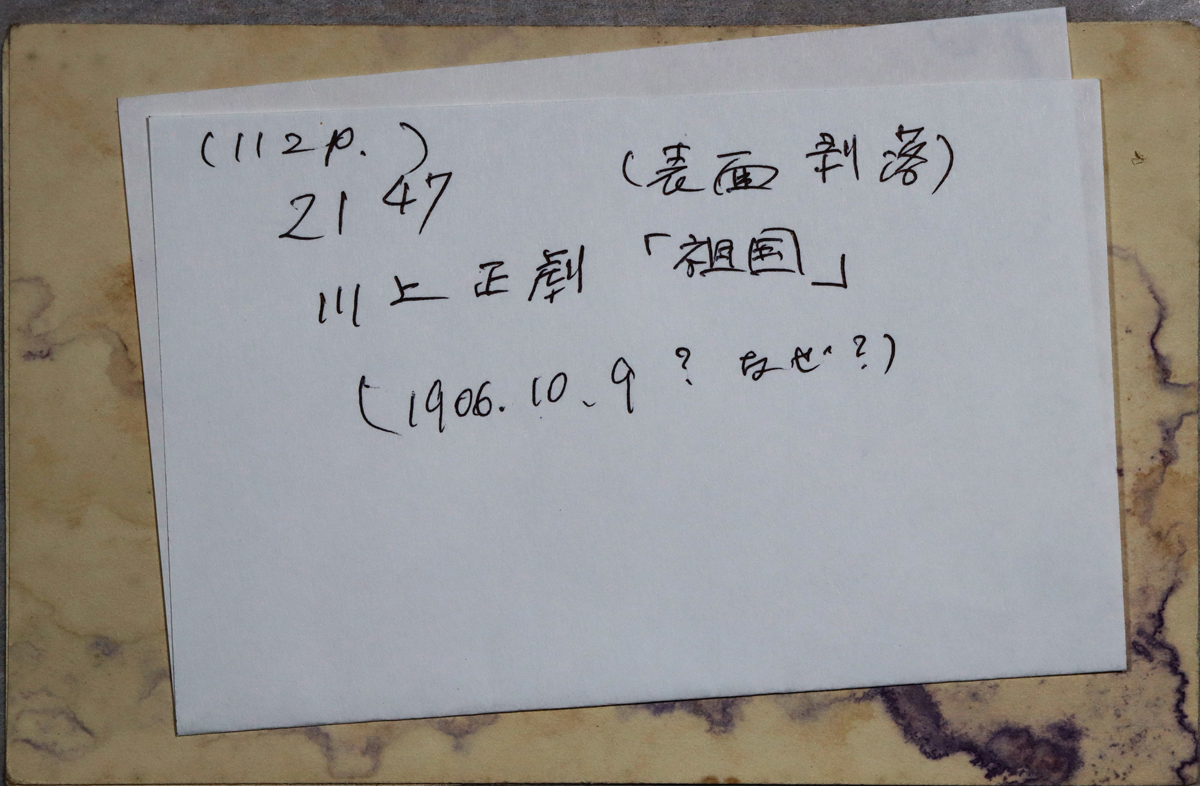 (112p.)
2147 (表面剥落)
川上正劇「祖国」
(1906.10.9？なぜ？)